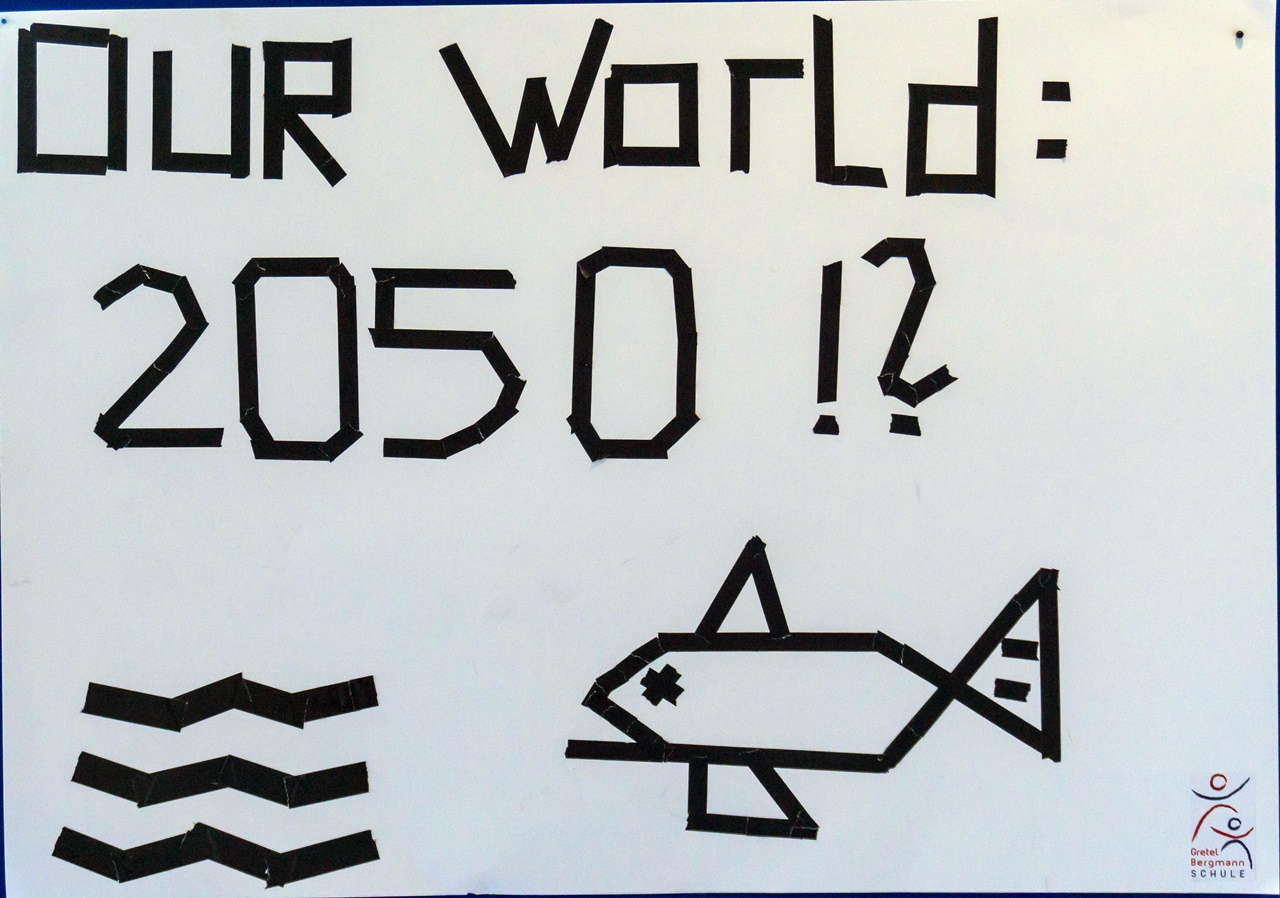 OUR World:
2050 !?
Gretel
Bergmann
SCHULE